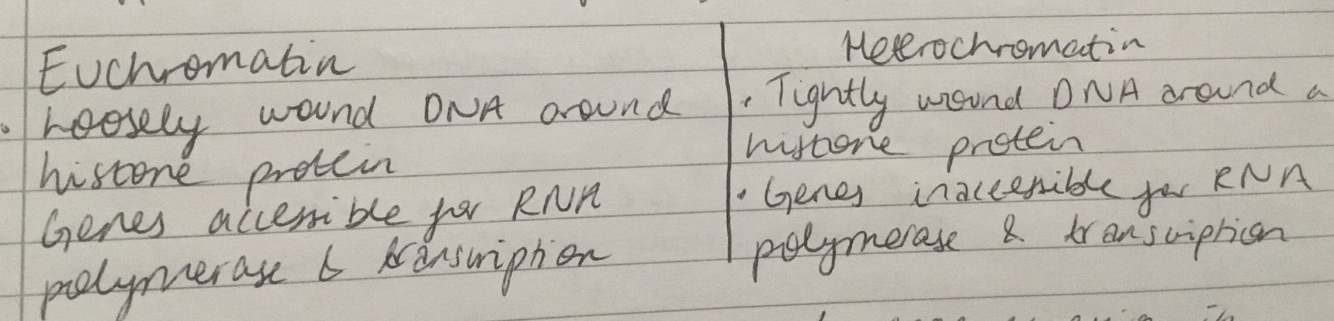 Euchromatin
• Loosely wound DNA around
histone protein
Genes accessible for RNA
polymerase & transcription
Heterochromatin
• Tightly wound DNA around a
histone protein
• Genes inaccessible for RNA
polymerase & transcription